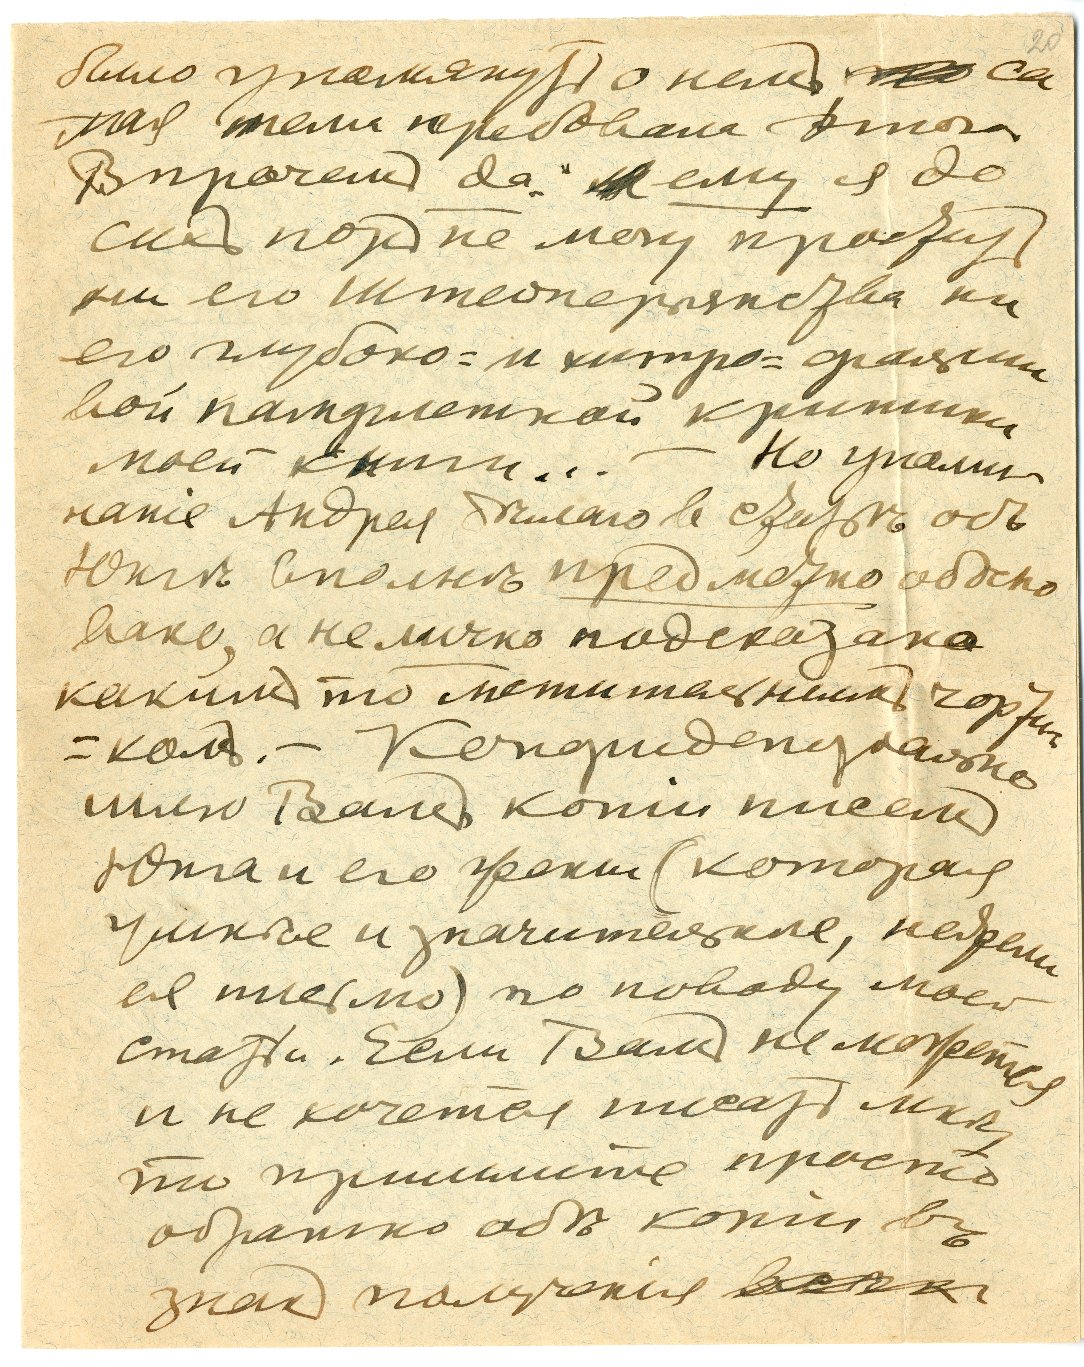 20
было упомянуть о немъ са
мая тема требовала этого
Впрочемъ да: ему я до
сихъ поръ не могу простить
ни его Штейнерьянства ни
его глубоко= и хитро= фальши
вой памфлетной критики
моей книги... — Но упоми
наніе Андрея Бѣлаго в связи объ
Юнгѣ вполнѣ предметно обосно
вано, а не лично подсказано
какимъ то мстительнымъ чорти
=комъ. — Конфиденціально
шлю Вамъ копіи писемъ
Юнга и его жены (которая
умнѣе и значительнѣе, нежели
ея письмо) по поводу моей
статьи. Если Вамъ не можется
и не хочется писать мнѣ,
то пришлите просто
обратно обѣ копіи въ
знакъ полученія